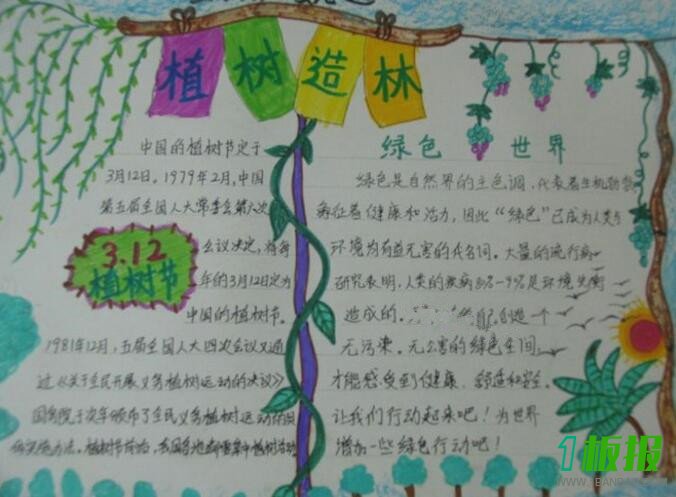 植树造林
中国的植树节定于
3月12日。1979年2月,中国
第五届全国人大常委会第六次
会议决定,将每
年的3月12日定为
中国的植树节。
3.12
植树节
1981年12月,五届全国人大四次会议又通
过《关于全民开展义务植树运动的决议》
国务院于次年颁布了全民义务植树运动的
绿色 世界
绿色是自然界的主色调,代表着生机勃勃
象征着健康和活力,因此“绿色”已成为人类与
环境为有益无害的代名词。大量的流行病
研究表明,人类的疾病
是环境失衡
造成的。
造一个
无污染。无公害的绿色空间,
才能感受到健康、舒适和安全。
让我们行动起来吧!为世界
增加一些绿色行动吧!
1板报